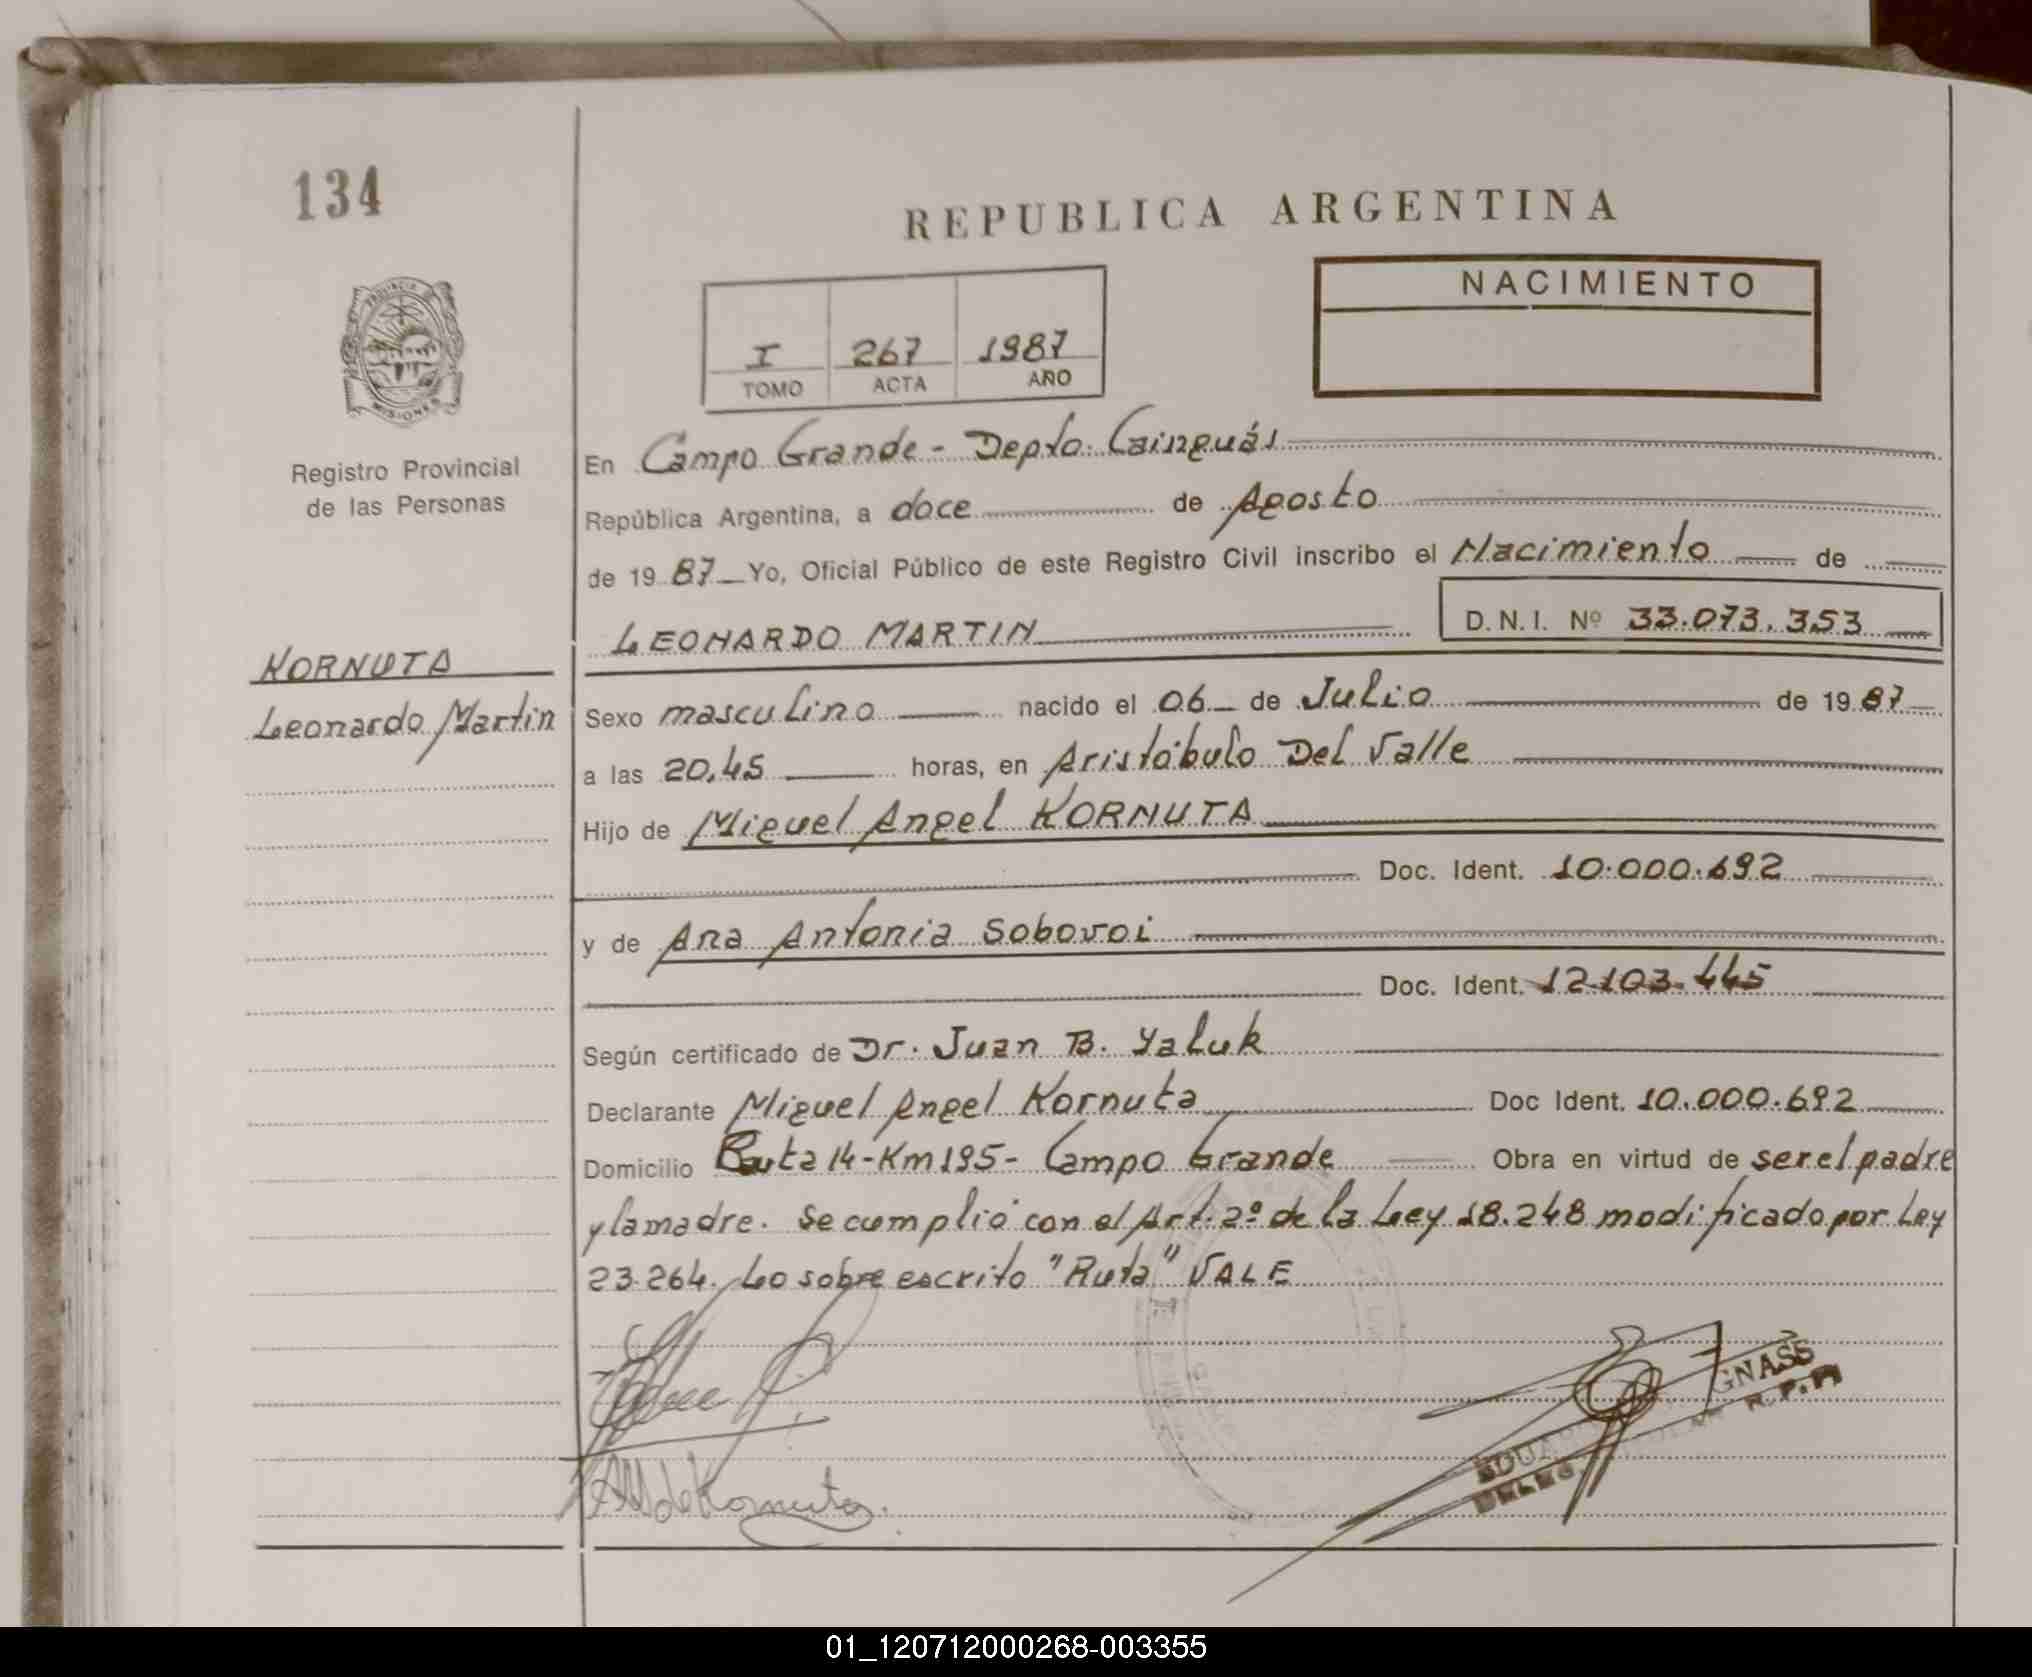 134
REPUBLICA ARGENTINA
PROVINCIA
MISIONES
Registro Provincial
de las Personas
NACIMIENTO
I 267 1987
TOMO ACTA AÑO
En Campo Grande - Depto. Cainguás
República Argentina, a doce de Agosto
de 19 87 Yo, Oficial Público de este Registro Civil inscribo el Nacimiento de
LEONARDO MARTIN D.N.I. Nº 33.073.353
KORNUTA
Leonardo Martin
Sexo masculino nacido el 06 de Julio de 19 87
a las 20,45 horas, en Aristóbulo Del Valle
Hijo de Miguel Angel KORNUTA
Doc. Ident. 10.000.692
y de Ana Antonia Sobovoi
Doc. Ident. 12.103.445
Según certificado de Dr. Juan B. Yaluk
Declarante Miguel Angel Kornuta Doc Ident. 10.000.692
Domicilio Ruta 14-Km 195- Campo Grande Obra en virtud de ser el padre
y la madre. Se cumplió con el Art. 2º de la Ley 18.248 modificado por Ley
23.264. Lo sobre escrito "Ruta" VALE
GNASS
R.P.P.
EDUAR
DELEG.
de Kornuta.
01_120712000268-003355